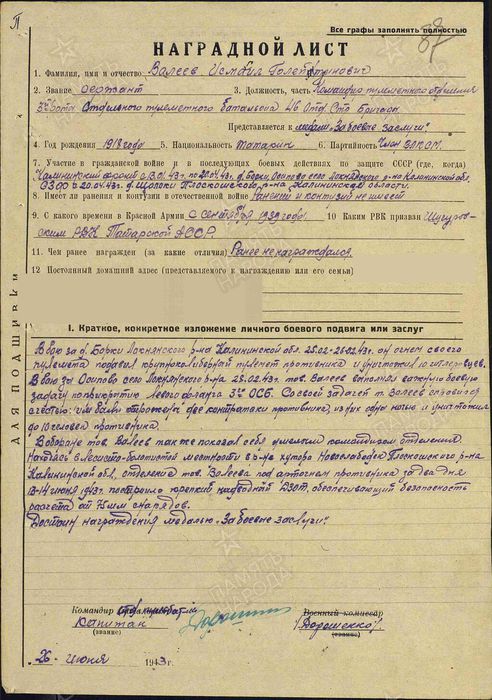 П
Все графы заполнять полностью
87
НАГРАДНОЙ ЛИСТ
1. Фамилия, имя и отчество Валеев Исмаил
2. Звание сержант 3. Должность, часть Командир пулеметного отделения
3й роты Отдельного пулеметного батальона 46 Отд. Стр. Бригады
Представляется к медали "За боевые заслуги".
4. Год рождения 1918 году 5. Национальность татарин 6. Партийность Член ВЛКСМ
7. Участие в гражданской войне и в последующих боевых действиях по защите СССР (где, когда)
Калининский фронт с 13.01.43г. по 20.04.43г. д. Борки, Осипово село Локнянского р-на Калининской обл.
СЗФ с 20.04.43г. Плоскошского р-на Калининской области.
8. Имеет ли ранения и контузии в отечественной войне Ранений и контузий не имеет
9. С какого времени в Красной Армии с сентября 1939 году. 10 Каким РВК призван
РВК Татарской АССР.
11. Чем ранее награжден (за какие отличия) Ранее не награждался
12 Постоянный домашний адрес (представляемого к награждению или его семьи)
ДЛЯ ПОДШИВКИ
I. Краткое, конкретное изложение личного боевого подвига или заслуг
В бою за д. Борки Локнянского р-на Калининской обл. 25.02-26.02.43г. он огнем своего
пулемета подавил крупнокалиберный пулемет противника и уничтожил 10 гитлеровцев.
В бою за Осипово село Локнянского р-на 28.02.43г. тов. Валеев выполнял важную боевую
задачу по прикрытию левого фланга 3го ОСБ. Со своей задачей т. Валеев справился
с честью: им были отражены две контратаки противника, из них одна ночью и уничтожил
до 10 человек противника.
В обороне тов. Валеев также показал себя умелым командиром отделения.
Находясь в лесисто-болотистой местности в р-не хутора Новослободка Плоскошского р-на
Калининской обл., отделение тов. Валеева под огнем противника за два дня
13-14 июня 1943г. построило крепкий надводный ДЗОТ, обеспечивающий безопасность
расчета от 75мм снарядов.
Достоин награждения медалью "За боевые заслуги".
Командир Военный комиссар
Капитан /Дорошенко/.
(звание) (звание)
"26" июня 1943г.
ПАМЯТЬ НАРОДА